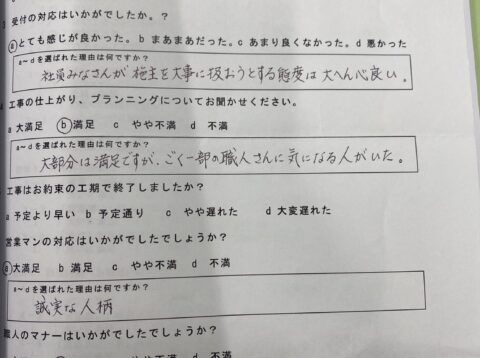 受付の対応はいかがでしたか。?
ⓐとても感じが良かった。b まあまあだった。c あまり良くなかった。d 悪かった
a~dを選ばれた理由は何ですか?
社員みなさんが施主を大事に扱おうとする態度は大へん心良い。
工事の仕上がり、プランニングについてお聞かせください。
a 大満足 ⓑ満足 c やや不満 d 不満
a~dを選ばれた理由は何ですか?
大部分は満足ですが、ごく一部の職人さんに気になる人がいた。
工事はお約束の工期で終了しましたか?
a 予定より早い b 予定通り c やや遅れた d 大変遅れた
営業マンの対応はいかがでしたでしょうか?
ⓐ大満足 b 満足 c やや不満 d 不満
a~dを選ばれた理由は何ですか?
誠実な人柄
職人のマナーはいかがでしたでしょうか?